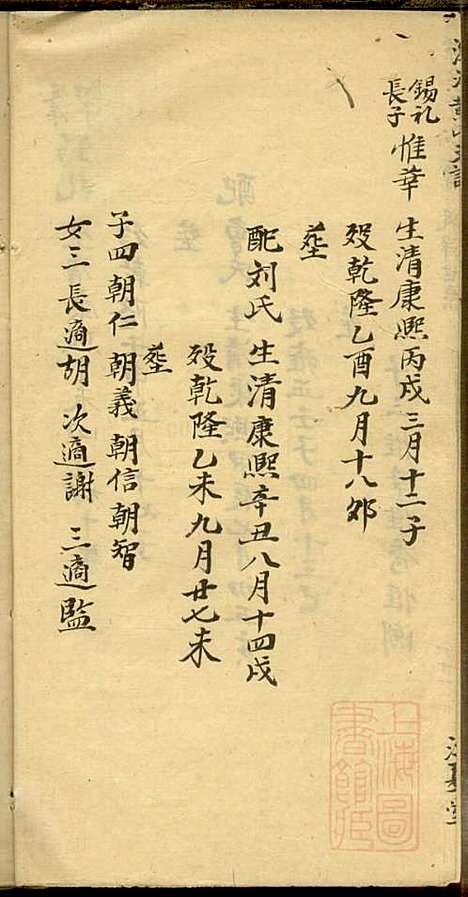 錫礼
長子
惟華 生清康熙丙戌三月十二子
歿乾隆乙酉九月十八卯
塟
配刘氏 生清康熙辛丑八月十四戌
歿乾隆乙未九月廿七未
塟
子四 朝仁 朝義 朝信 朝智
女三 長適胡 次適謝 三適監
上海圖
書館藏